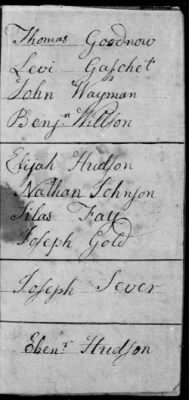 Thomas Goodnow
Levi Gaſchet
John Wayman
Benjn Willson
Elijah Hudſon
Nathan Johnſon
Silas Fay
Joſeph Gold
Joſeph Sever
Ebenr Hudſon